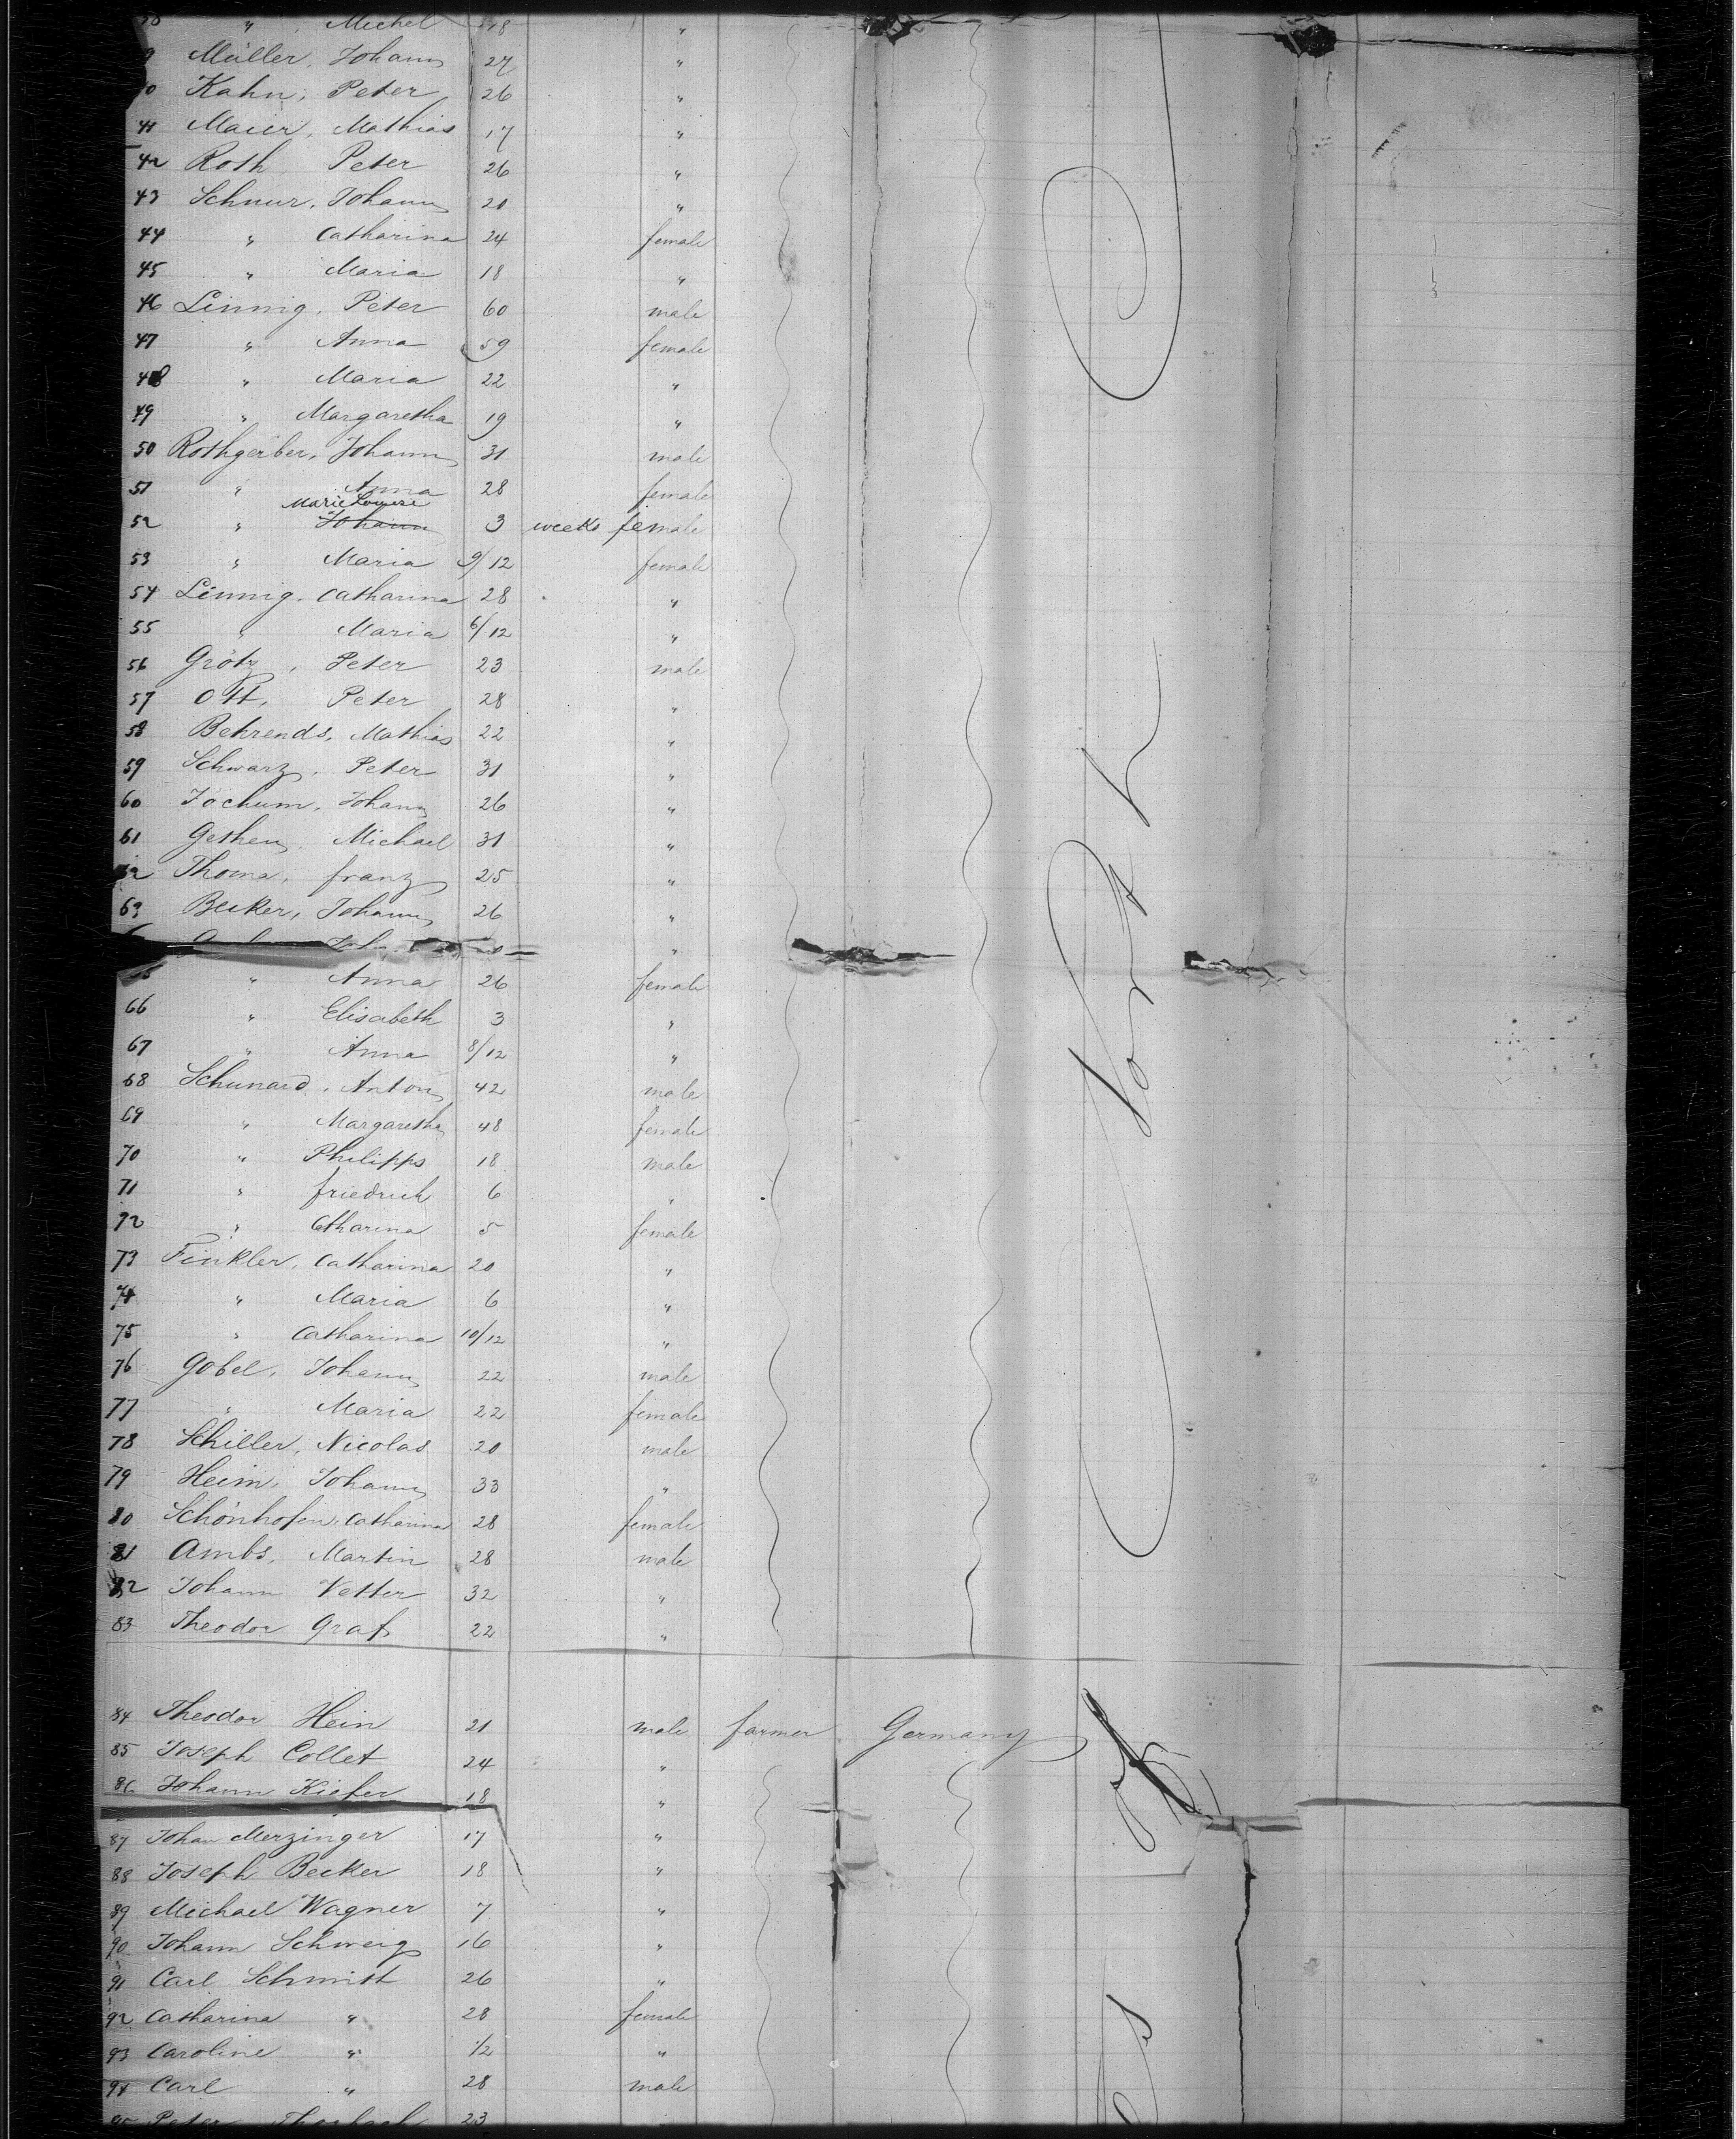 " Michel 18 "
Müller, Johann 27 "
Kahn, Peter 26 "
41 Maier, Mathias 17 "
42 Roth, Peter 26 "
43 Schnur, Johann 20 "
44 " Catharina 24 female
45 " Maria 18 "
46 Linnig, Peter 60 male
47 " Anna 59 female
48 " Maria 22 "
49 " Margaretha 19 "
50 Rothgerber, Johann 31 male
51 " Anna 28 female
Marie Louise
52 " Johann 3 weeks female
53 " Maria 9/12 female
54 Linnig, Catharina 28 "
55 " Maria 6/12 "
56 Grötz, Peter 23 male
57 Ott, Peter 28 "
58 Behrends, Mathias 22 "
59 Schwarz, Peter 31 "
60 Jochum, Johann 26 "
61 Gethen, Michael 31 "
62 Thoma, franz 25 "
63 Becker, Johann 26 "
" Anna 26 female
66 " Elisabeth 3 "
67 " Anna 8/12 "
68 Schunard, Anton 42 male
69 " Margaretha 48 female
70 " Philipps 18 male
71 " friedrich 6 "
72 " Catharina 5 female
73 Finkler, Catharina 20 "
74 " Maria 6 "
75 " Catharina 10/12 "
76 Gobel, Johann 22 male
77 " Maria 22 female
78 Schiller, Nicolas 20 male
79 Heim, Johann 33 "
80 Schönhofen, Catharina 28 female
81 Ambs, Martin 28 male
82 Johann Vetter 32 "
83 Theodor Graf 22 "
84 Theodor Hein 21 male farmer Germany of
85 Joseph Collet 24 "
86 Johann Kiefer 18 "
87 Johan Merzinger 17 "
88 Joseph Becker 18 "
89 Michael Wagner 7 "
90 Johann Schweig 16 "
91 Carl Schmist 26 "
92 Catharina " 28 female
93 Caroline " 1/2 "
94 Carl " 28 male
95 Peter 23